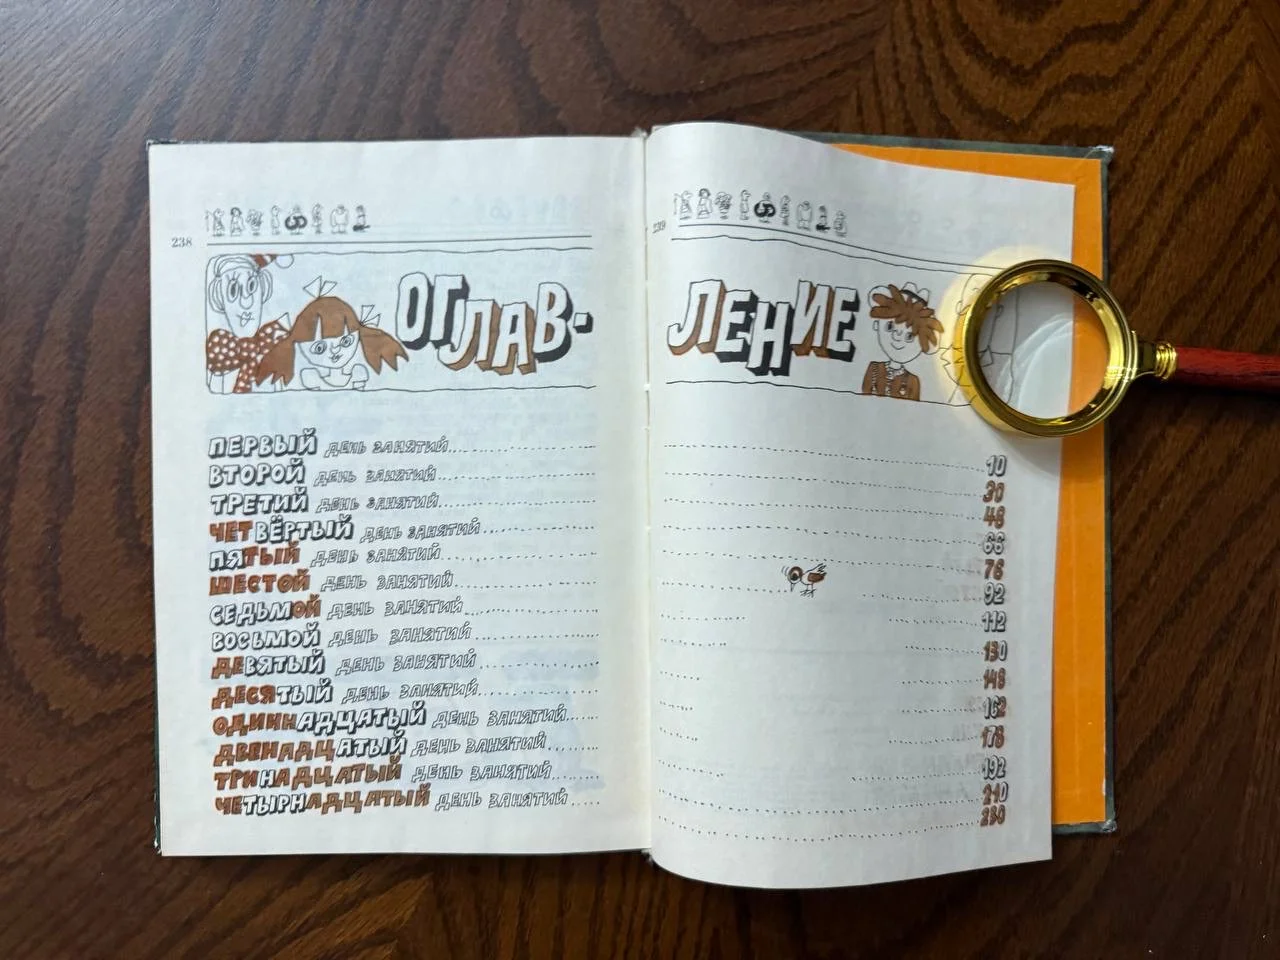 238
ОГЛАВ-
ПЕРВЫЙ ДЕНЬ ЗАНЯТИЙ
ВТОРОЙ ДЕНЬ ЗАНЯТИЙ
ТРЕТИЙ ДЕНЬ ЗАНЯТИЙ
ЧЕТВЁРТЫЙ ДЕНЬ ЗАНЯТИЙ
ПЯТЫЙ ДЕНЬ ЗАНЯТИЙ
ШЕСТОЙ ДЕНЬ ЗАНЯТИЙ
СЕДЬМОЙ ДЕНЬ ЗАНЯТИЙ
ВОСЬМОЙ ДЕНЬ ЗАНЯТИЙ
ДЕВЯТЫЙ ДЕНЬ ЗАНЯТИЙ
ДЕСЯТЫЙ ДЕНЬ ЗАНЯТИЙ
ОДИННАДЦАТЫЙ ДЕНЬ ЗАНЯТИЙ
ДВЕНАДЦАТЫЙ ДЕНЬ ЗАНЯТИЙ
ТРИНАДЦАТЫЙ ДЕНЬ ЗАНЯТИЙ
ЧЕТЫРНАДЦАТЫЙ ДЕНЬ ЗАНЯТИЙ
239
ЛЕНИЕ
10
30
48
66
76
92
112
130
148
162
178
192
210
230